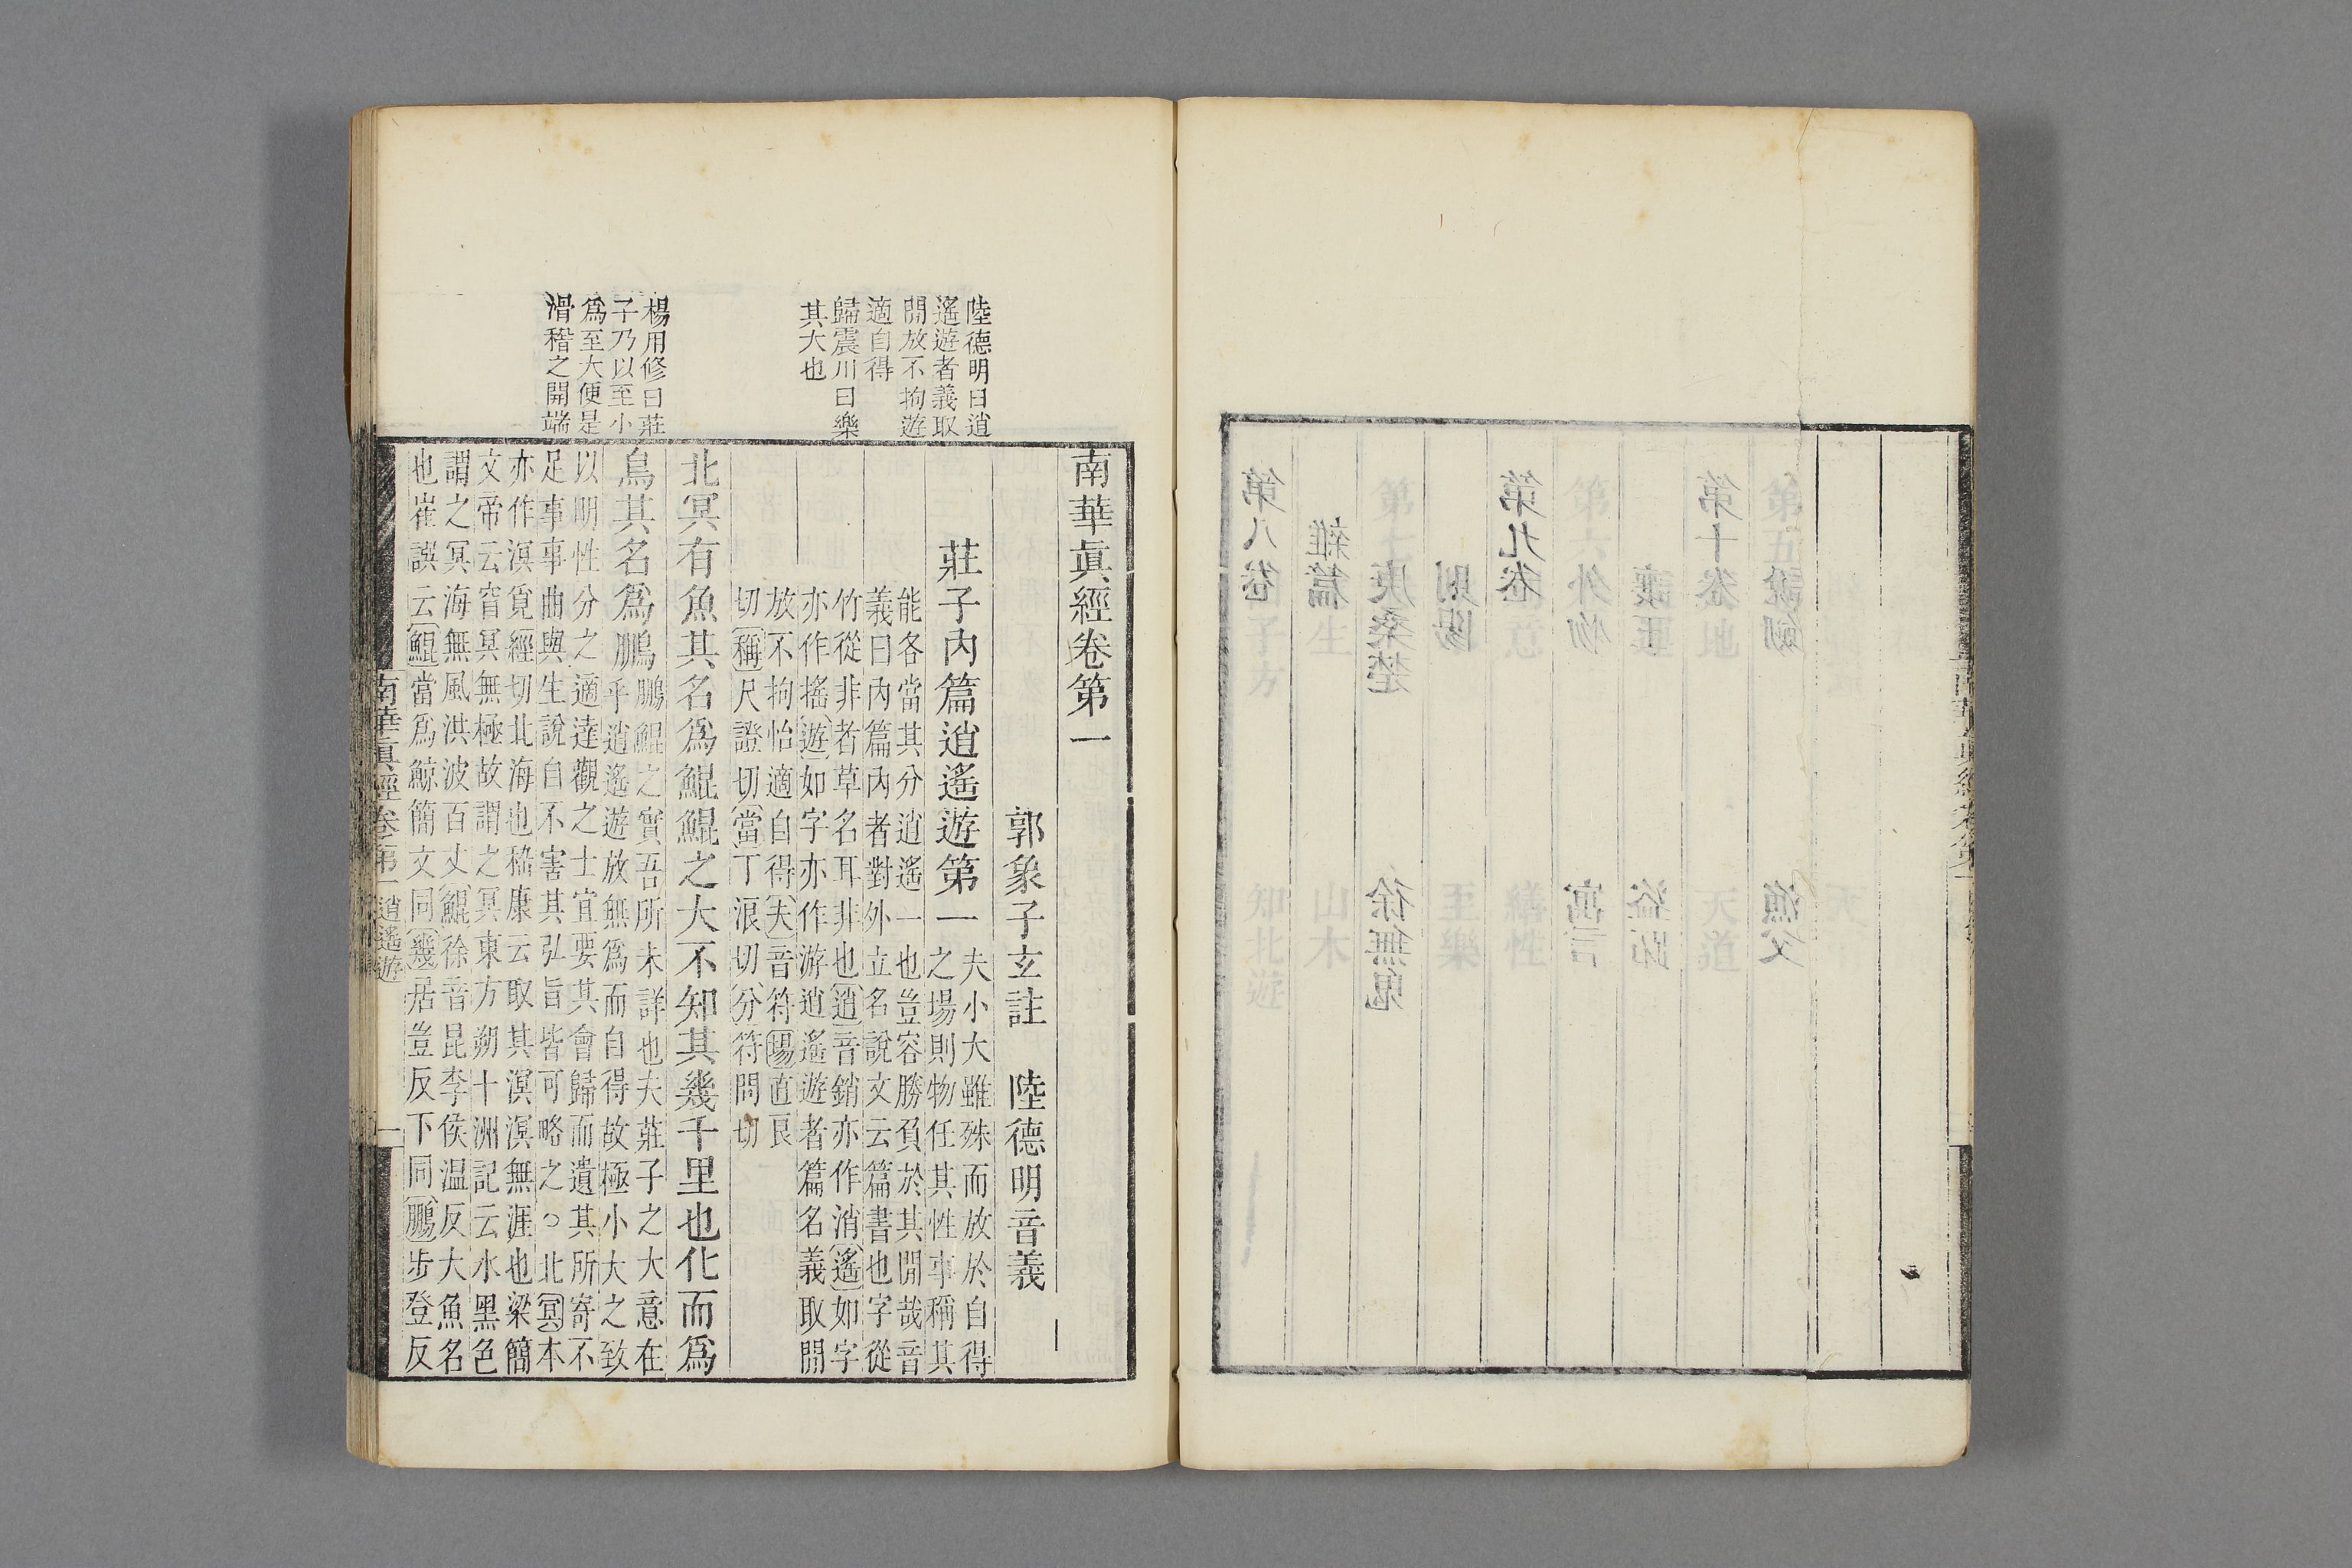 陸德明曰逍
遙遊者義取
閒放不拘遊
適自得
歸震川曰樂
其大也
楊用修曰莊
子乃以至小
爲至大便是
滑稽之開端
南華眞經卷第一
郭象子玄註 陸德明音義
莊子內篇逍遙遊第一
夫小大雖殊而放於自得
之場則物任其性事稱其
能各當其分逍遙一也豈容勝負於其閒哉音
義曰內篇內者對外立名說文云篇書也字從
竹從非者草名耳非也逍音銷亦作消遙如字
亦作搖遊如字亦作游逍遙遊者篇名義取閒
放不拘怡適自得夫音符場直良
切稱尺證切當丁浪切分符問切
北冥有魚其名爲鯤鯤之大不知其幾千里也化而爲
鳥其名爲鵬
鵬鯤之實吾所未詳也夫莊子之大意在
乎逍遙遊放無爲而自得故極小大之致
以明性分之適達觀之士宜要其會歸而遺其所寄不
足事事曲與生說自不害其弘旨皆可略之○北冥本
亦作溟覓經切北海也嵇康云取其溟溟無涯也梁簡
文帝云窅冥無極故謂之冥東方朔十洲記云水黑色
謂之冥海無風洪波百丈鯤徐音昆李侯温反大魚名
也崔譔云鯤當爲鯨簡文同幾居豈反下同鵬步登反
南華眞經卷第一 逍遙遊 一